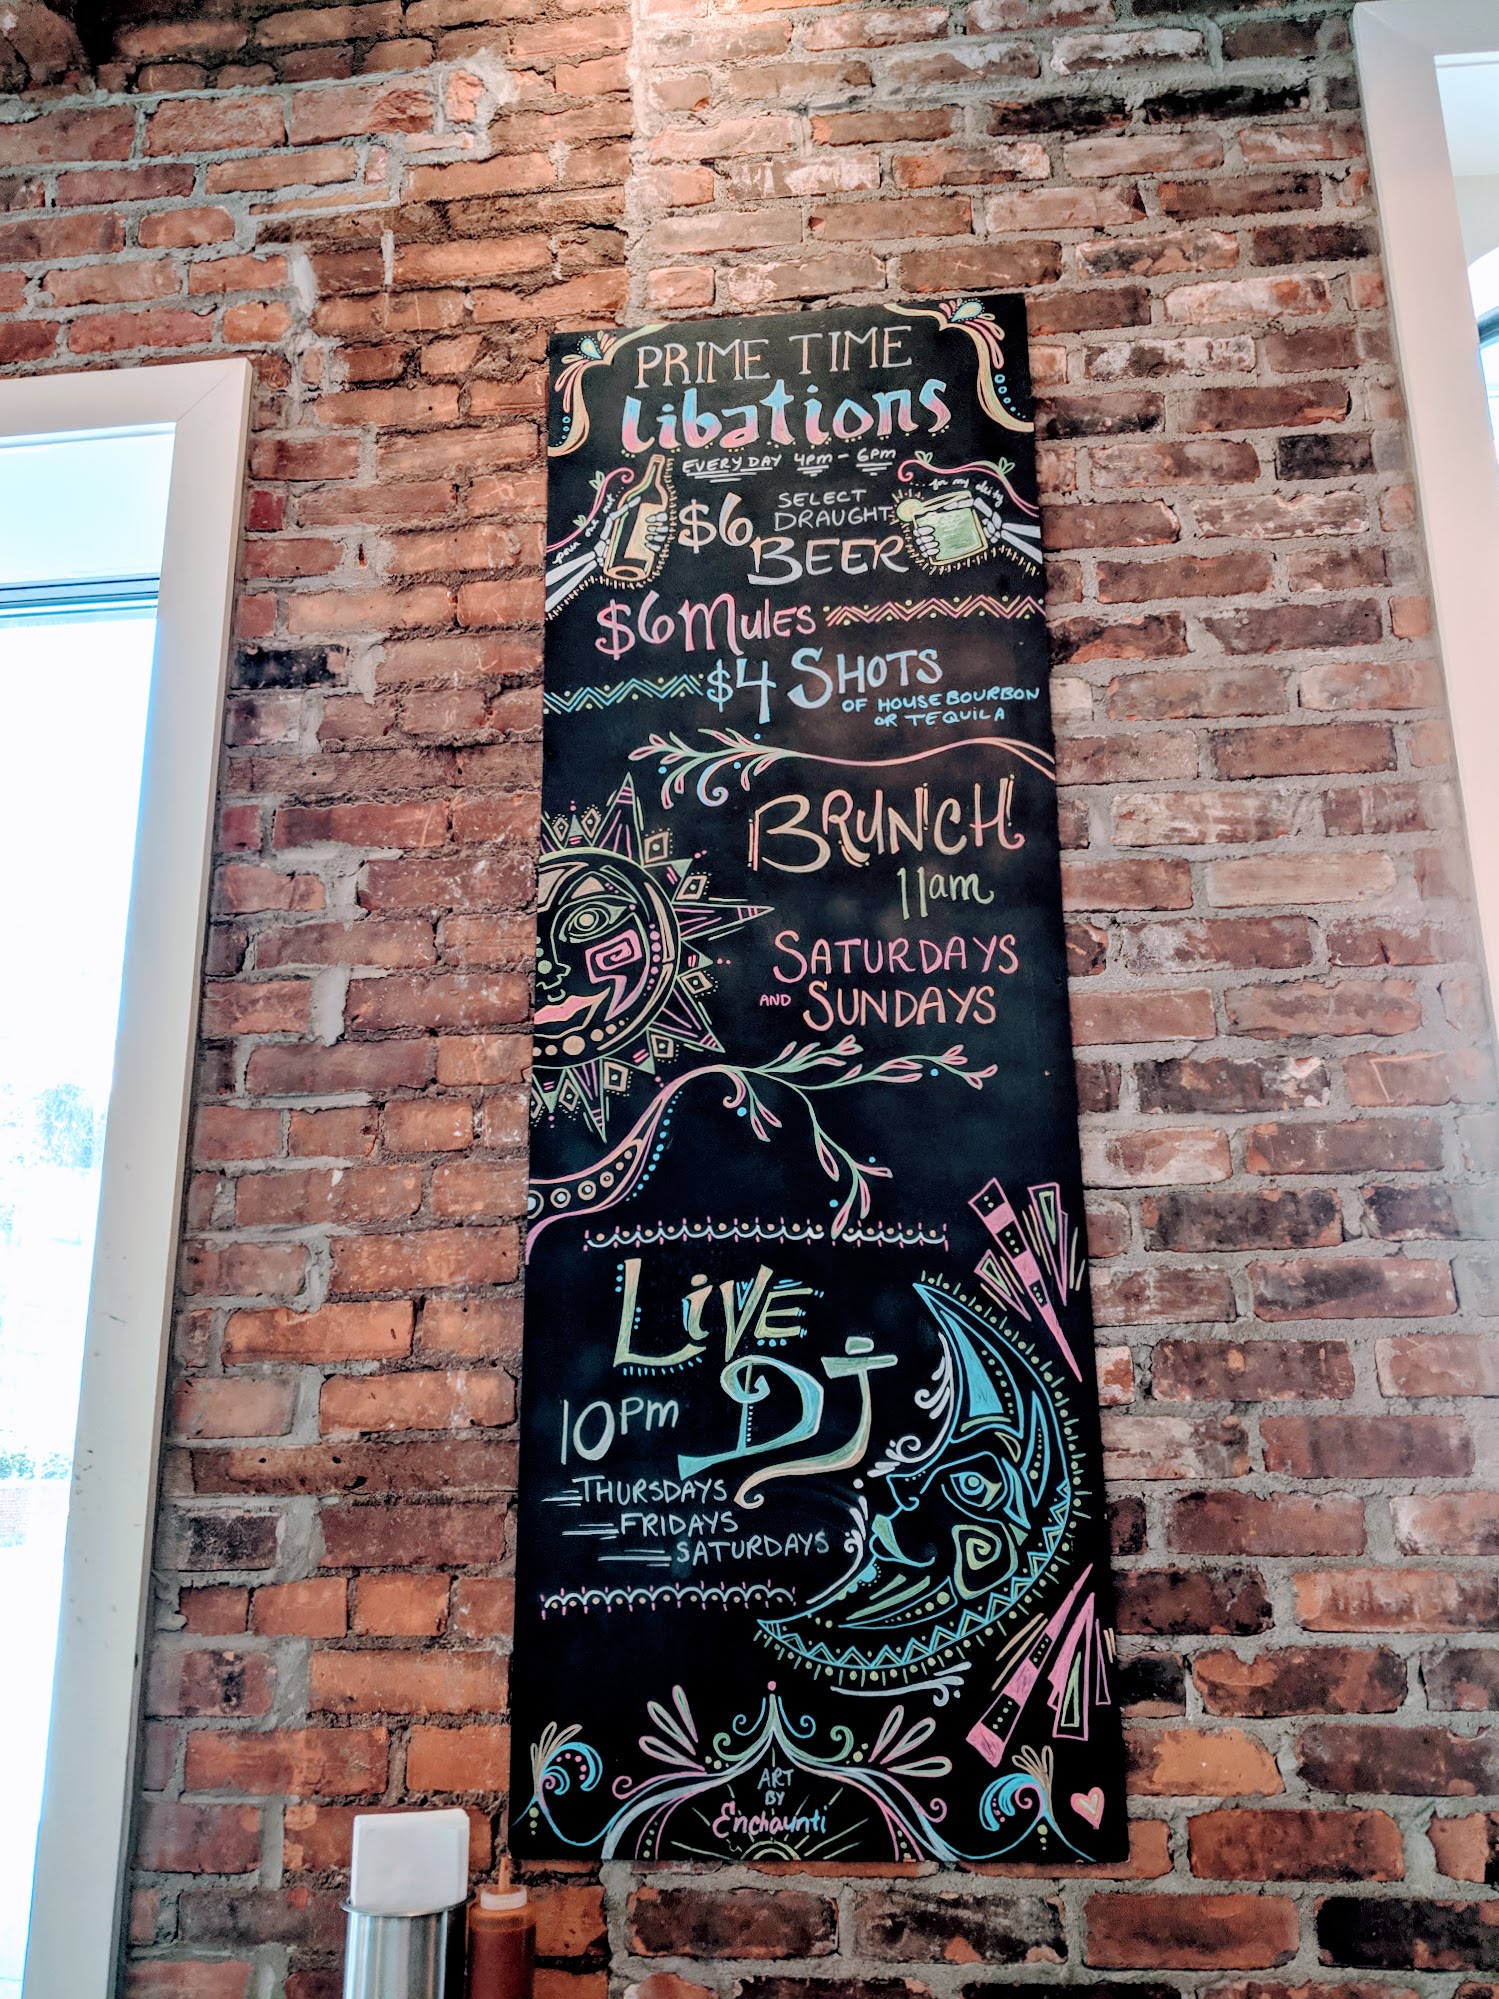 PRIME TIME
Libations
EVERY DAY 4PM - 6PM
pour me out
for my deity
$6 SELECT
DRAUGHT
BEER
$6 Mules
$4 SHOTS
OF HOUSE BOURBON
OR TEQUILA
BRUNCH
11am
SATURDAYS
AND SUNDAYS
LiVE
DJ
10PM
THURSDAYS
FRIDAYS
SATURDAYS
ART
BY
Enchaunti